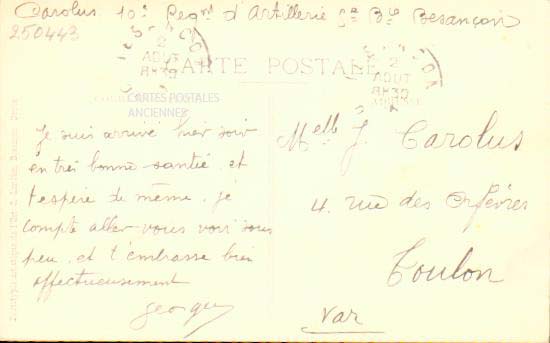 Carolus 10e Regnt d'Artillerie 5e Bie Besançon
250443
2
AOUT
8H30
2
AOUT
8H30
CARTE POSTALE
CARTES POSTALES
ANCIENNES
Je suis arrivé hier soir
en très bonne santé, et
t'espère de même, je
compte aller vous voir sous
peu, et t'embrasse bien
affectueusement
Georges
Melle J. Carolus
4. rue des Orfèvres
Toulon
Var